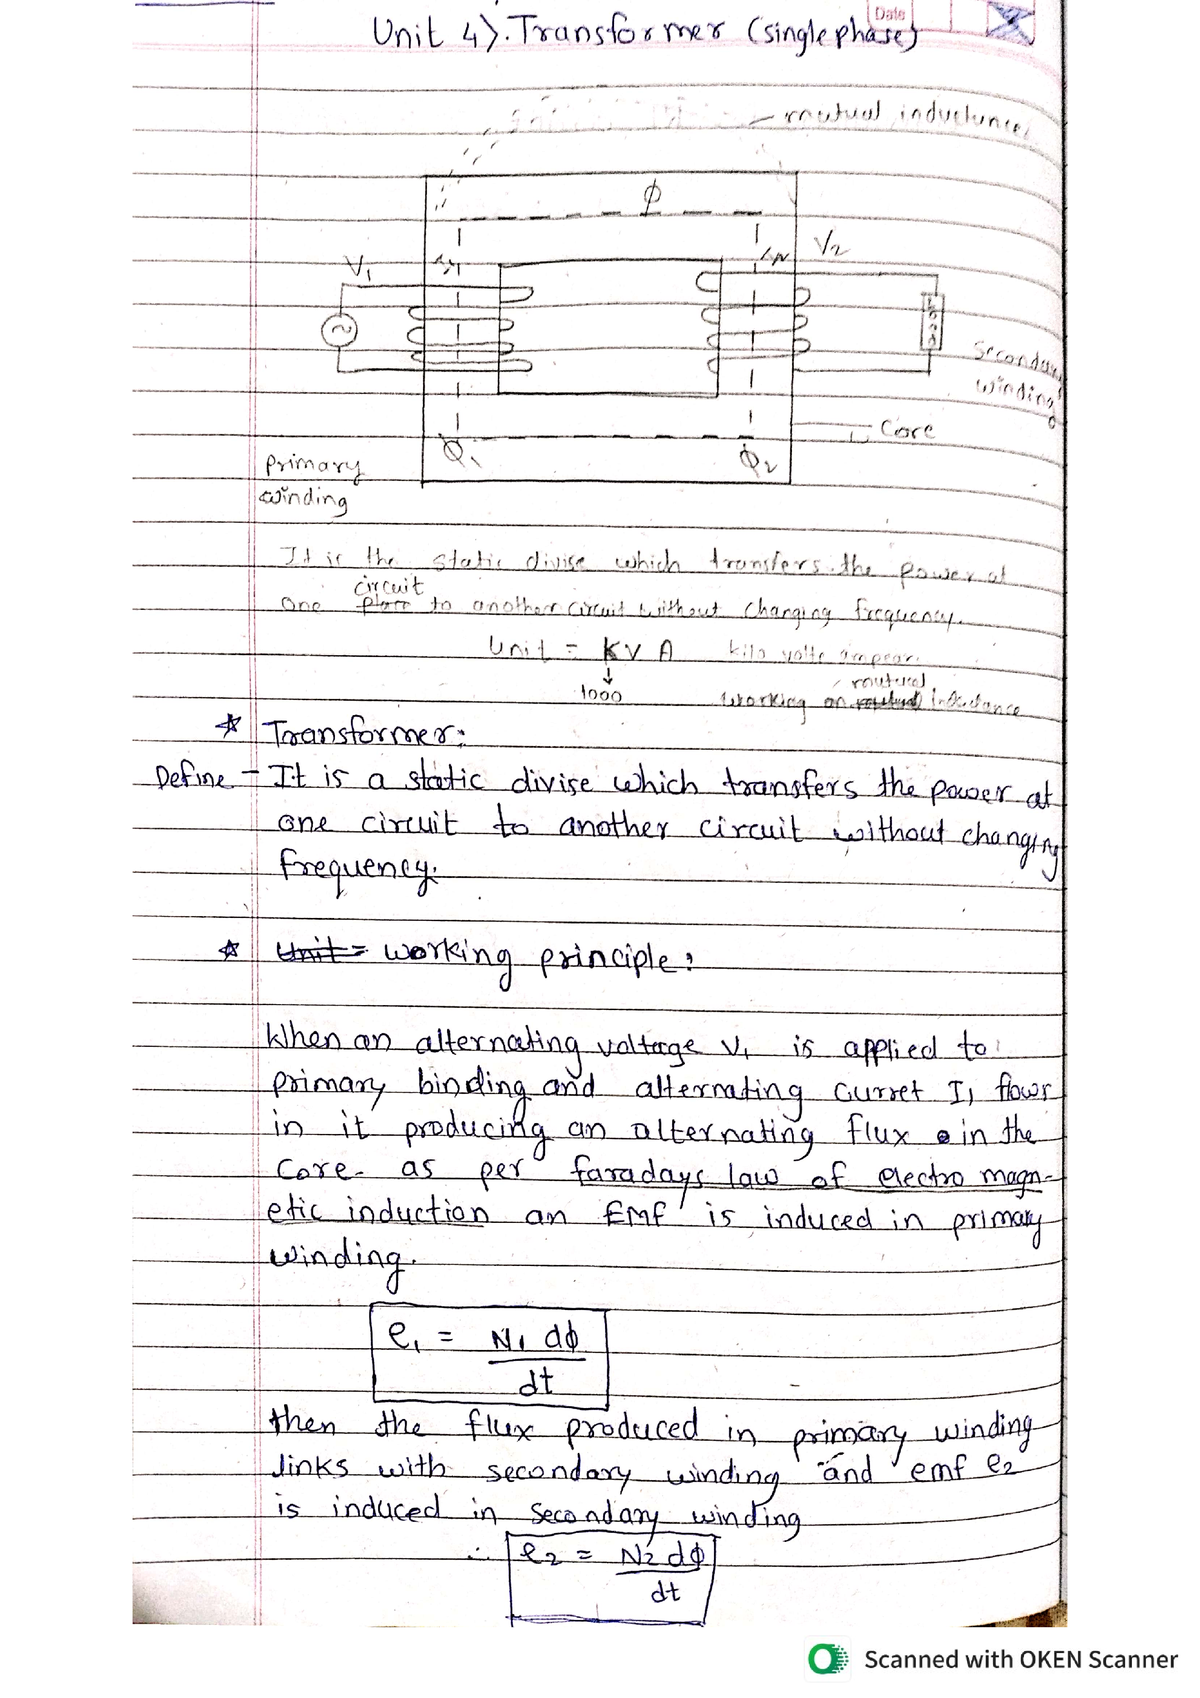 Date
Unit 4). Transformer (single phase)
mutual inductance
ϕ
V1
V2
Load
Secondary
winding
Core
ϕ1
ϕ2
Primary
winding
It is the static divise which transfers the power at
circuit
one place to another circuit without changing frequency.
Unit = KVA kilo volte ampear.
↓
1000
mutual
working on inductance
☆ Transformer:
Define - It is a static divise which transfers the power at
one circuit to another circuit without changing
frequency.
☆ Unit = working principle:
When an alternating voltage V1 is applied to
primary binding and alternating curret I1 flows
in it producing an alternating flux in the
core. as per faradays law of electro magn-
etic induction an EMF is induced in primary
winding.
e1 = N1 dϕ
dt
then the flux produced in primary winding
links with secondary winding and emf e2
is induced in secondary winding
∴ e2 = N2 dϕ
dt
Scanned with OKEN Scanner